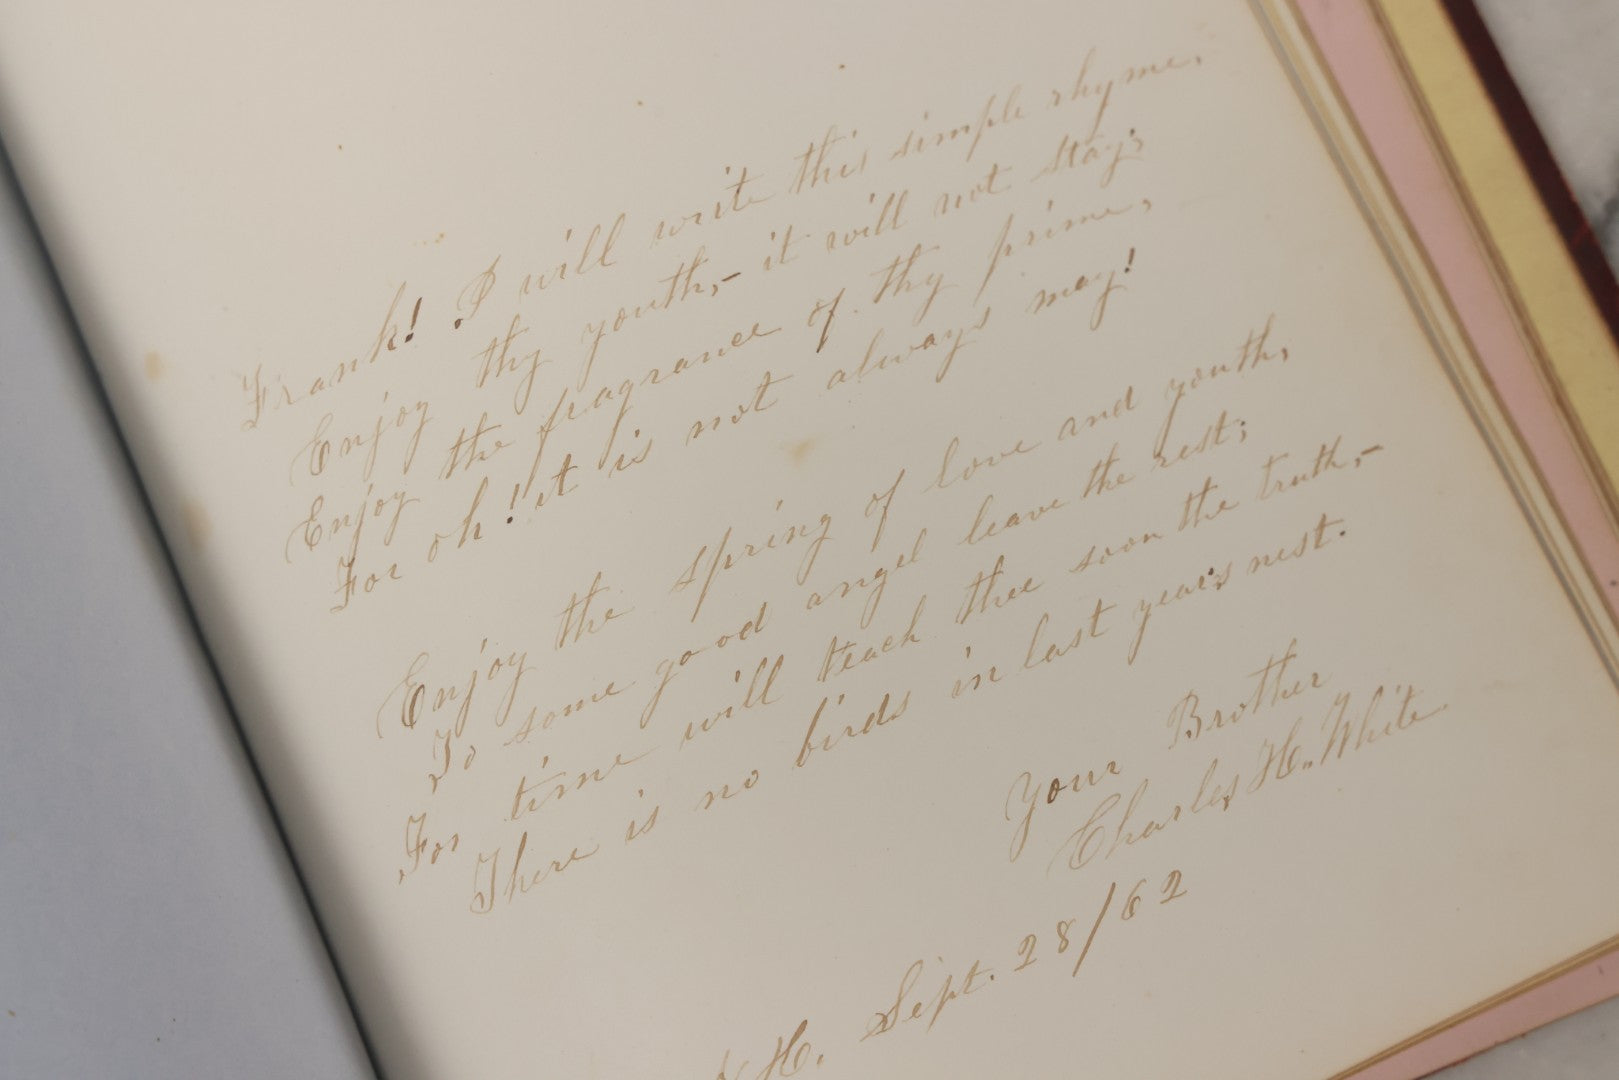 Frank! I will write this simple rhyme,
Enjoy thy youth,- it will not stay;
Enjoy the fragrance of thy prime,
For oh! it is not always may!
Enjoy the spring of love and youth,
To some good angel leave the rest;
For time will teach thee soon the truth,-
There is no birds in last years nest.
Your Brother
Charles H. White.
H. Sept. 28/62